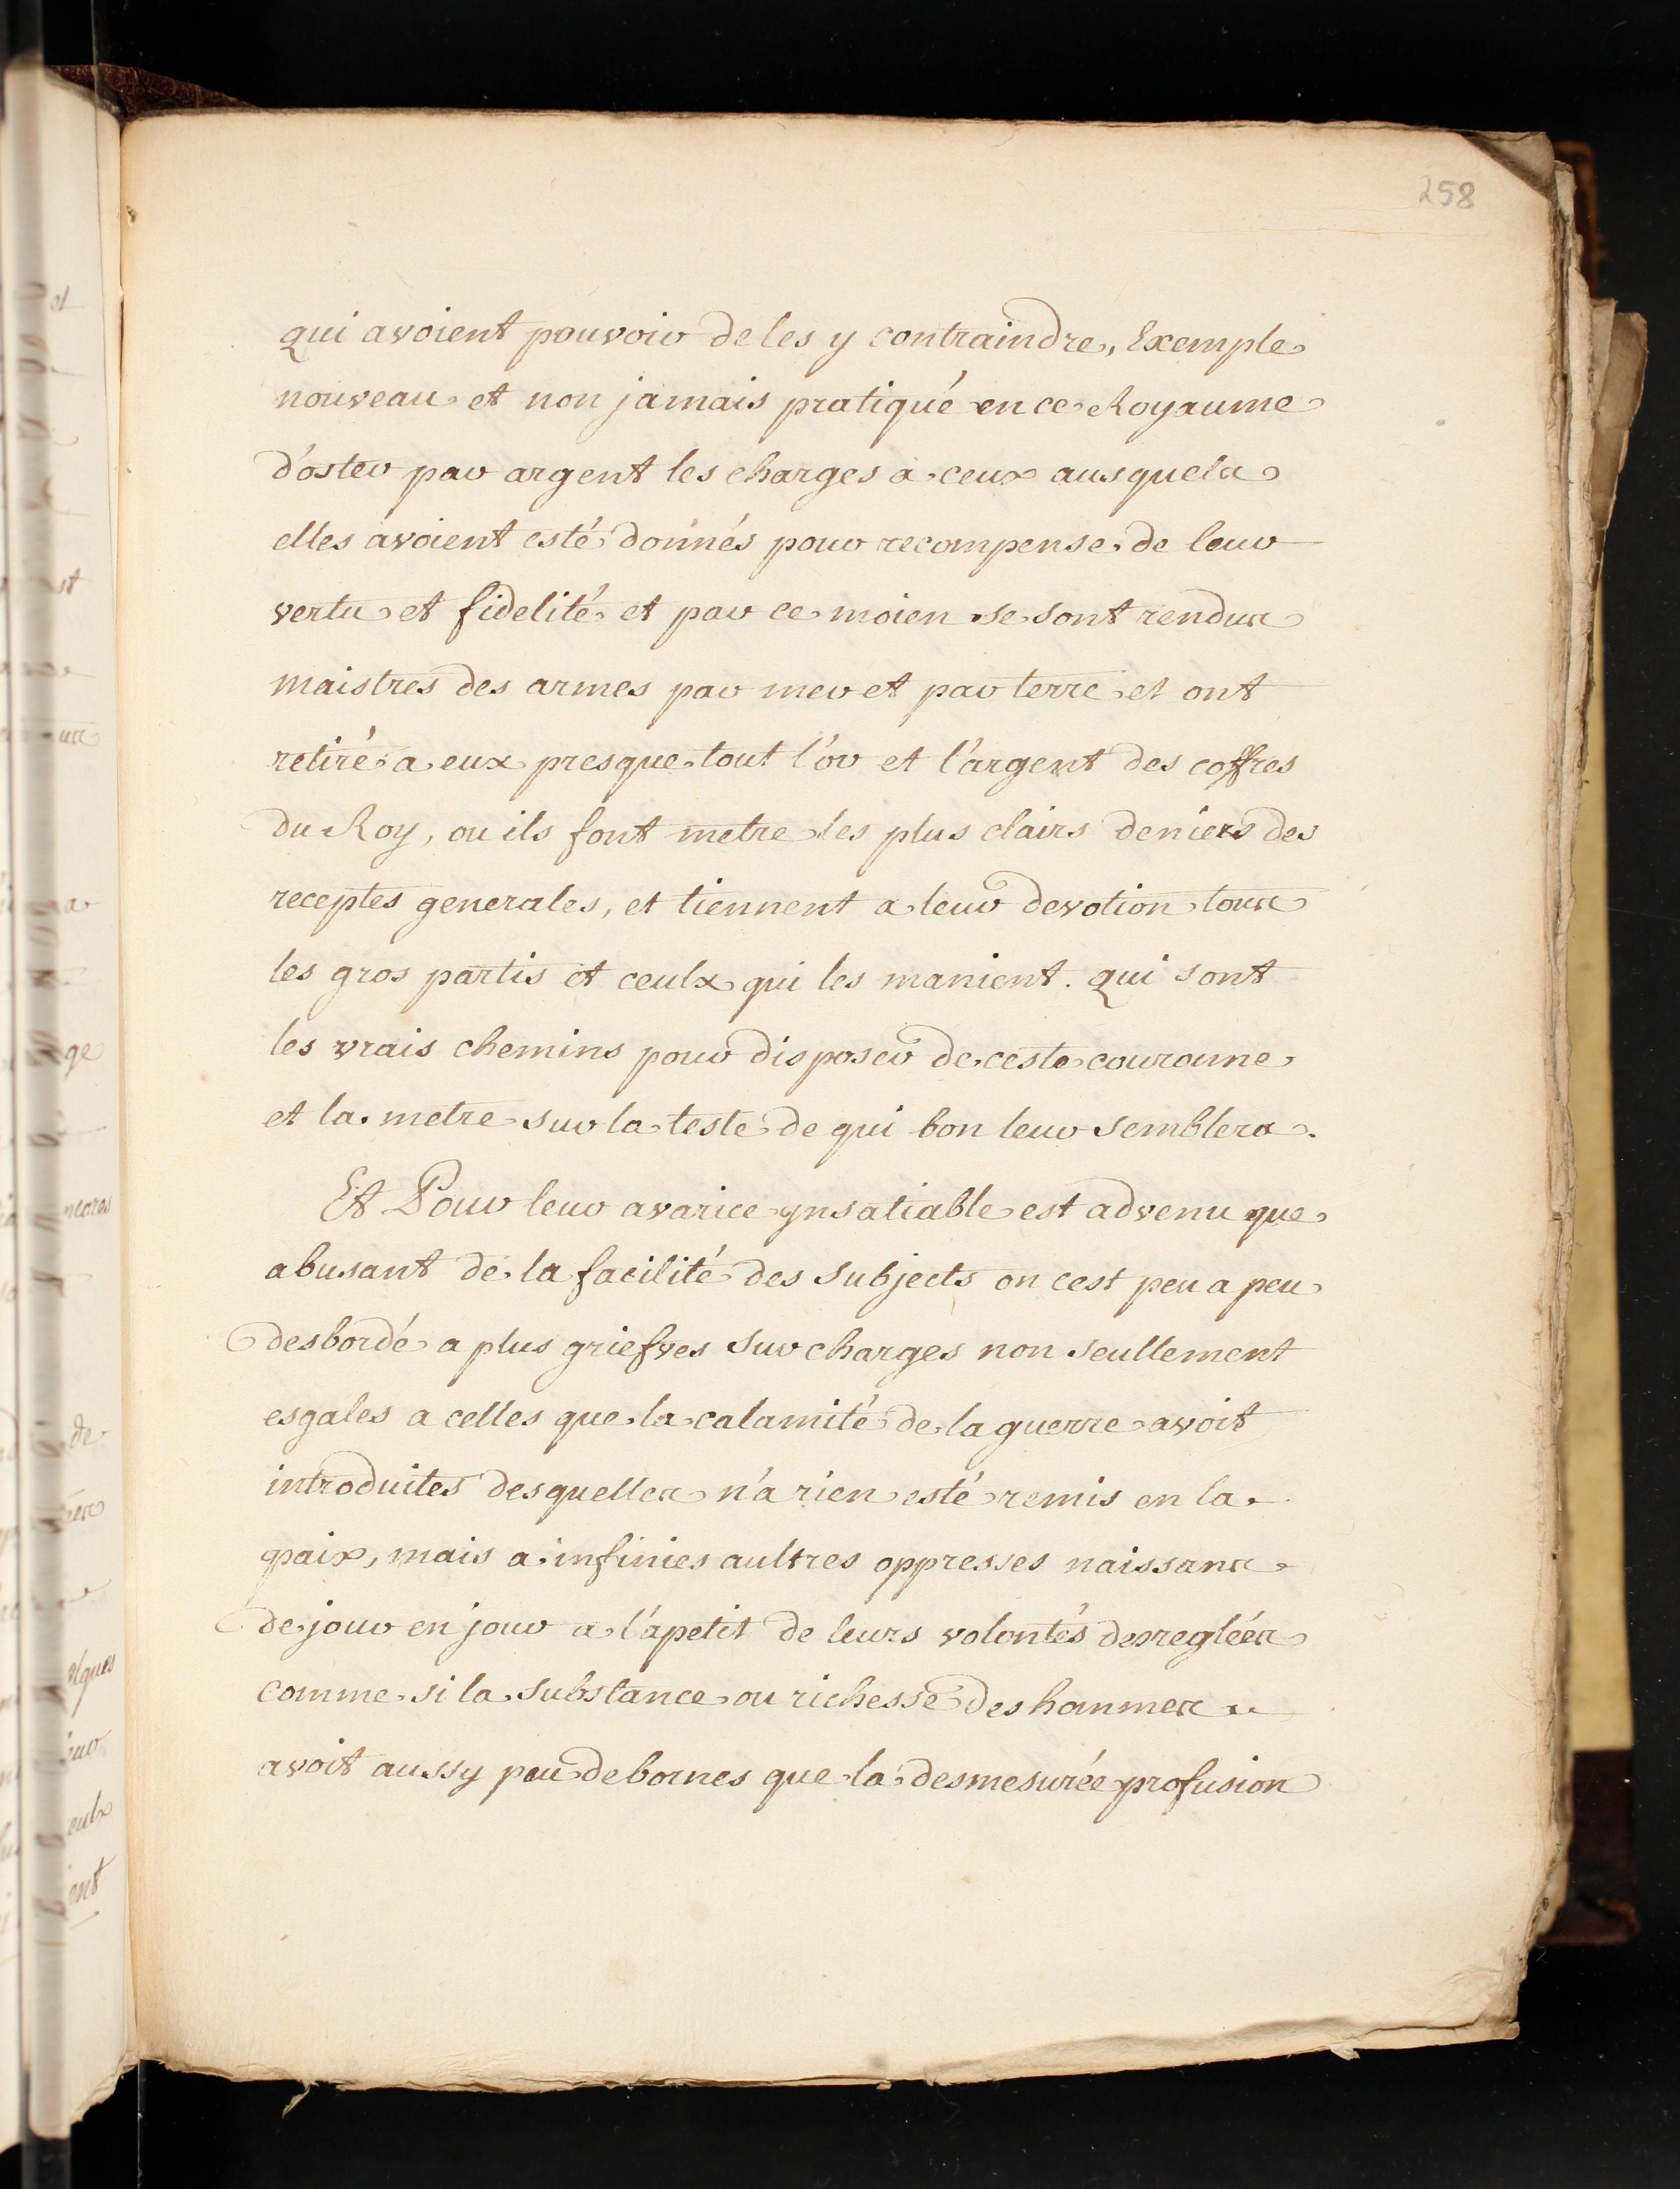 258
qui avoient pouvoir de les y contraindre, Exemple
nouveau et non jamais pratiqué en ce Royaume
d'oster par argent les charges a ceux ausquels
elles avoient esté donnés pour recompense de leur
vertu et fidelité et par ce moien se sont rendus
maistres des armes par mer et par terre et ont
retiré a eux presque tout l'or et l'argent des coffres
du Roy, ou ils font metre les plus clairs deniers des
receptes generales, et tiennent a leur devotion tous
les gros partis et ceulx qui les manient. qui sont
les vrais chemins pour disposer de ceste couronne
et la metre sur la teste de qui bon leur semblera.
Et Pour leur avarice ynsatiable est advenu que
abusant de la facilité des subjects on cest peu a peu
desbordé a plus griefves surcharges non seullement
esgales a celles que la calamité de la guerre avoit
introduites desquelles n'a rien esté remis en la
paix, mais a infinies aultres oppresses naissans
de jour en jour a l'apetit de leurs volontés desreglées
comme si la substance ou richesse des hommes
avoit aussy peu de bornes que la desmesurée profusion